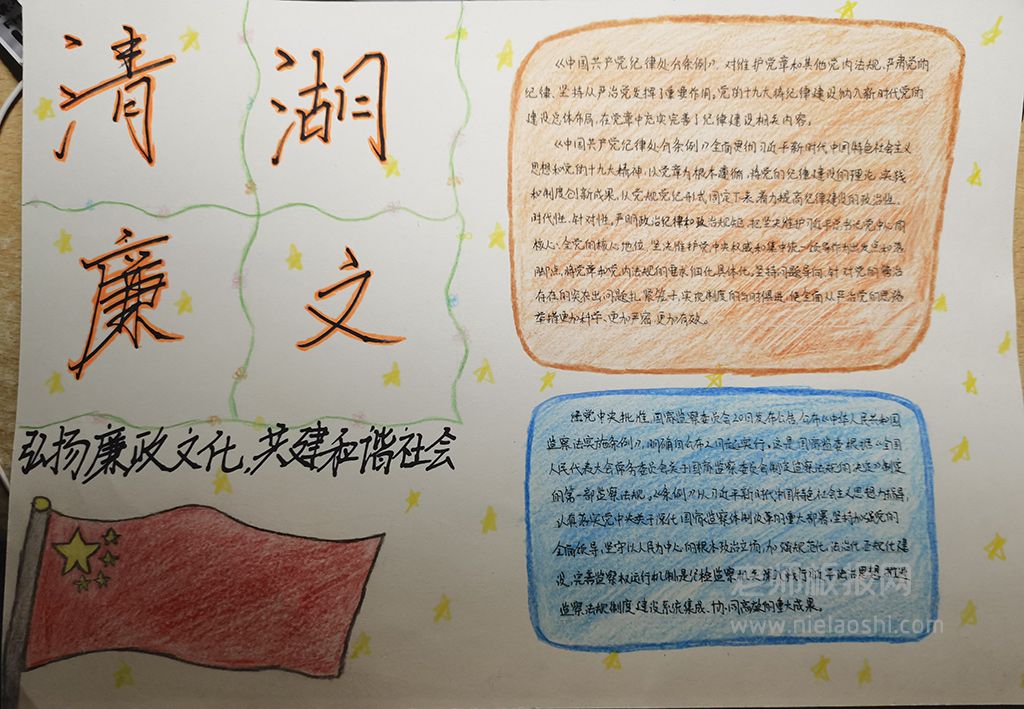 清 湖
廉 文
弘扬廉政文化,共建和谐社会
《中国共产党纪律处分条例》,对维护党章和其他党内法规,严肃党的
纪律,坚持从严治党发挥了重要作用,党的十九大将纪律建设纳入新时代党的
建设总体布局,在党章中充实完善了纪律建设相关内容。
《中国共产党纪律处分条例》全面贯彻习近平新时代中国特色社会主义
思想和党的十九大精神,以党章为根本遵循,将党的纪律建设的理论、实践
和制度创新成果,以党规党纪形式固定下来,着力提高纪律建设的政治性、
时代性、针对性。严明政治纪律和政治规矩,把坚决维护习近平总书记党中心的
核心、全党的核心地位,坚决维护党中央权威和集中统一领导作为出发点和落
脚点,将党章和党内法规的要求细化、具体化。坚持问题导向,针对党的
存在的突出问题扎紧笼子,实现制度的与时俱进,使全面从严治党的思路
举措更加科学、更加严密、更加有效。
经党中央批准,国家监察委员会20日发布公告,公布《中华人民共和国
监察法实施条例》,明确自公布之日起实行。这是国家监委根据《全国
人民代表大会常务委员会关于国家监察委员会制定监察法规的决定》制定
的第一部监察法规。《条例》以习近平新时代中国特色社会主义思想为指导,
认真落实党中央关于深化国家监察体制改革的重大部署,坚持加强党的
全面领导,坚守以人民为中心的根本政治立场,加强规范化、法治化、正规化建
设,完善监察权运行机制,是纪检监察机关
监察法规制度建设系统集成、协同高效的重大成果。
www.nielaoshi.com